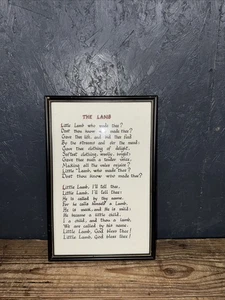 THE LAMB
Little Lamb who made thee?
Dost thou know who made thee?
Gave thee life, and bid thee feed
By the stream and o'er the mead:
Gave thee clothing of delight,
Softest clothing, woolly, bright:
Gave thee such a tender voice,
Making all the vales rejoice?
Little Lamb, who made thee?
Dost thou know who made thee?
Little Lamb, I'll tell thee,
Little Lamb, I'll tell thee:
He is called by thy name,
For he calls himself a Lamb.
He is meek, and He is mild;
He became a little child.
I a child, and thou a lamb,
We are called by his name.
Little Lamb, God bless thee!
Little Lamb, God bless thee!